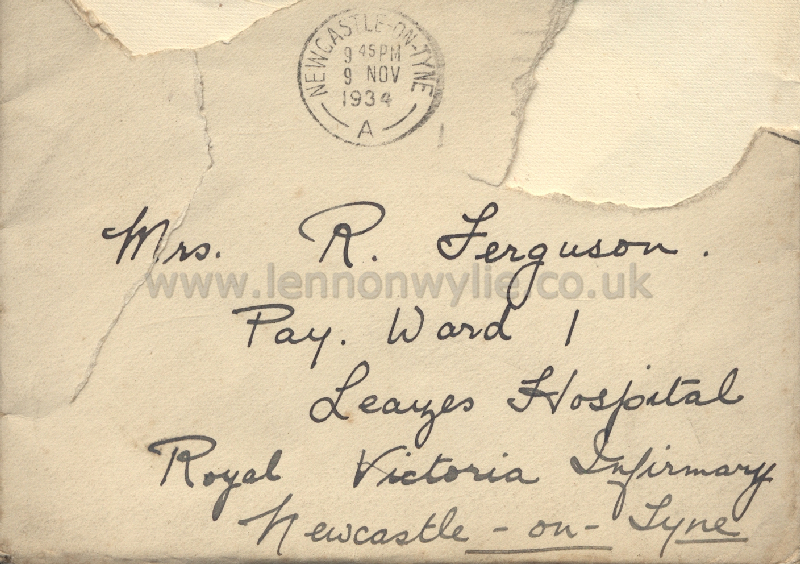 NEWCASTLE-ON-TYNE
9 45 PM
9 NOV
1934
A
Mrs. R. Ferguson.
www.lennonwylie.co.uk
Pay. Ward 1
Leazes Hospital
Royal Victoria Infirmary
Newcastle-on-Tyne